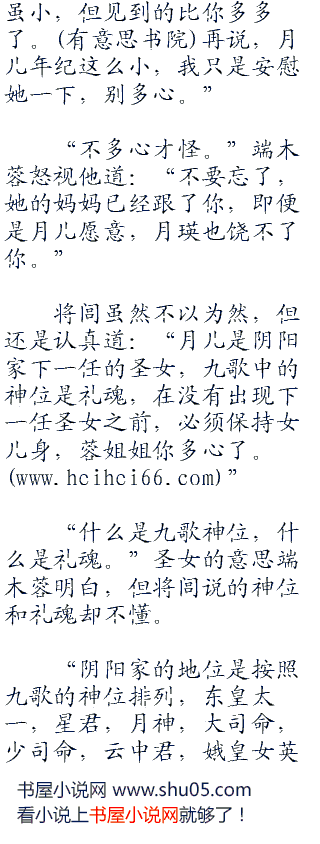 虽小，但见到的比你多多
了。(有意思书院)再说，月
儿年纪这么小，我只是安慰
她一下，别多心。”
“不多心才怪。”端木
蓉怒视他道：“不要忘了，
她的妈妈已经跟了你，即便
是月儿愿意，月瑛也饶不了
你。”
将闾虽然不以为然，但
还是认真道：“月儿是阴阳
家下一任的圣女，九歌中的
神位是礼魂，在没有出现下
一任圣女之前，必须保持女
儿身，蓉姐姐你多心了。
(www.hcihci66.com)”
“什么是九歌神位，什
么是礼魂。”圣女的意思端
木蓉明白，但将闾说的神位
和礼魂却不懂。
“阴阳家的地位是按照
九歌的神位排列，东皇太
一，星君，月神，大司命，
少司命，云中君，娥皇女英
书屋小说网 www.shu05.com
看小说上书屋小说网就够了！